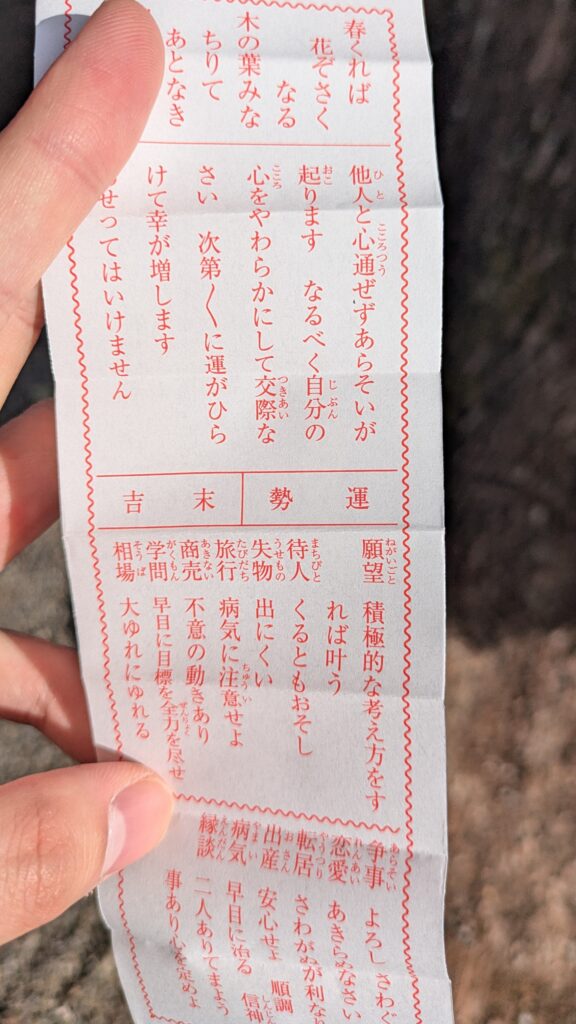 春くれば
花ぞさく
なる
木の葉みな
ちりて
あとなき
他人と心通ぜずあらそいが
起ります なるべく自分の
心をやわらかにして交際な
さい 次第〱に運がひら
けて幸が増します
せってはいけません
運勢
末吉
願望 積極的な考え方をす
れば叶う
待人 くるともおそし
失物 出にくい
旅行 病気に注意せよ
商売 不意の動きあり
学問 早目に目標を全力を尽せ
相場 大ゆれにゆれる
争事 よろし さわぐ
恋愛 あきらめなさい
転居 さわがぬが利なり
出産 安心せよ 順調 信神
病気 早目に治る
縁談 二人ありてまよう
事あり心を定めよ